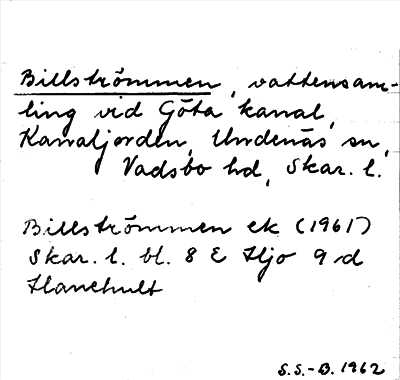 Billströmmen, vattensam-
ling vid Göta kanal,
Kanaljorden, Undenäs sn,
Vadsbo hd, Skar. l.
Billströmmen ek (1961)
Skar. l. bl. 8 E Hjo 9 d
Hanehult
S.S.-B. 1962